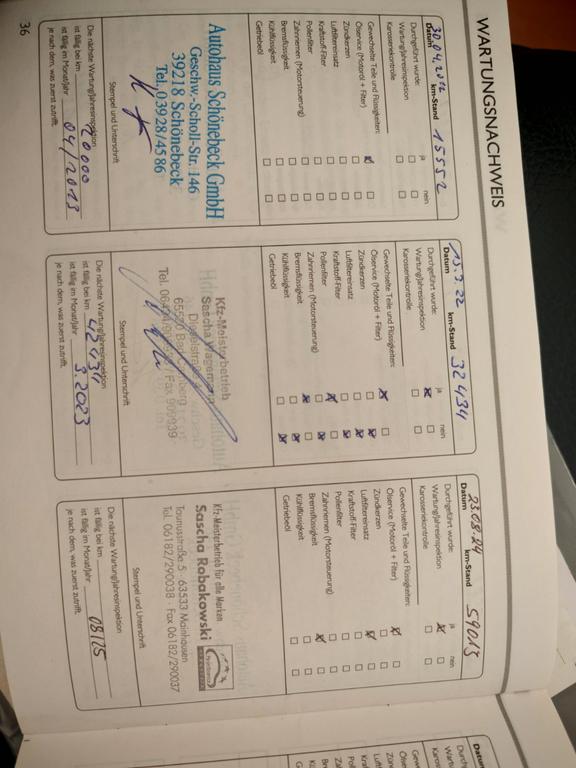 WARTUNGSNACHWEIS
30.04.2012 15552
Datum km-Stand
Durchgeführt wurde: ja nein
Wartung/Jahresinspektion
Karosseriekontrolle
Gewechselte Teile und Flüssigkeiten:
Ölservice (Motoröl + Filter)
Zündkerzen
Luftfiltereinsatz
Kraftstoff-Filter
Pollenfilter
Zahnriemen (Motorsteuerung)
Bremsflüssigkeit
Kühlflüssigkeit
Getriebeöl
Autohaus Schönebeck GmbH
Geschw.-Scholl-Str. 146
39218 Schönebeck
Tel. 03928/4586
Stempel und Unterschrift
Die nächste Wartung/Jahresinspektion
ist fällig bei km
ist fällig im Monat/Jahr 04/2013
je nach dem, was zuerst zutrifft.
32434
Datum km-Stand
Durchgeführt wurde: ja nein
Wartung/Jahresinspektion
Karosseriekontrolle
Gewechselte Teile und Flüssigkeiten:
Ölservice (Motoröl + Filter)
Zündkerzen
Luftfiltereinsatz
Kraftstoff-Filter
Pollenfilter
Zahnriemen (Motorsteuerung)
Bremsflüssigkeit
Kühlflüssigkeit
Getriebeöl
Kfz-Meisterbetrieb
Sascha
Tel. Fax
Stempel und Unterschrift
Die nächste Wartung/Jahresinspektion
ist fällig bei km 42434
ist fällig im Monat/Jahr 3.2023
je nach dem, was zuerst zutrifft.
23.08.24 59013
Datum km-Stand
Durchgeführt wurde: ja nein
Wartung/Jahresinspektion
Karosseriekontrolle
Gewechselte Teile und Flüssigkeiten:
Ölservice (Motoröl + Filter)
Zündkerzen
Luftfiltereinsatz
Kraftstoff-Filter
Pollenfilter
Zahnriemen (Motorsteuerung)
Bremsflüssigkeit
Kühlflüssigkeit
Getriebeöl
Kfz-Meisterbetrieb für alle Marken
Sascha Robakowski
Taunusstraße 5 · 63533 Mainhausen
Tel. 06182/290038 · Fax 06182/290037
Stempel und Unterschrift
Die nächste Wartung/Jahresinspektion
ist fällig bei km
ist fällig im Monat/Jahr 08/25
je nach dem, was zuerst zutrifft.
36